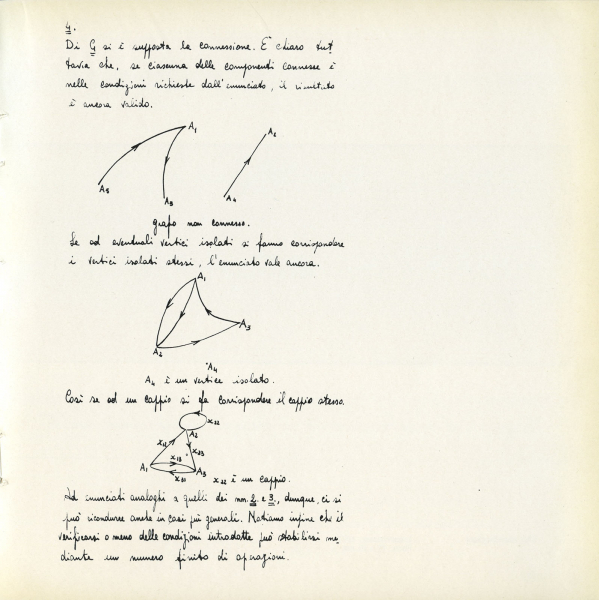 4.
Di G si è supposta la connessione. È chiaro tut
tavia che, se ciascuna delle componenti connesse è
nelle condizioni richieste dall'enunciato, il risultato
è ancora valido.
A1
A2
A5
A3
A4
grafo non connesso.
Se ad eventuali vertici isolati si fanno corrispondere
i vertici isolati stessi, l'enunciato vale ancora.
A1
A3
A2
A4
A4 è un vertice isolato.
Così se ad un cappio si fa corrispondere il cappio stesso.
x22
A2
x12
x23
x13
A1
A3
x31
x22 è un cappio.
Ad enunciati analoghi a quelli dei nn. 2. e 3., dunque, ci si
può ricondurre anche in casi più generali. Notiamo infine che il
verificarsi o meno delle condizioni introdotte può stabilirsi me
diante un numero finito di operazioni.